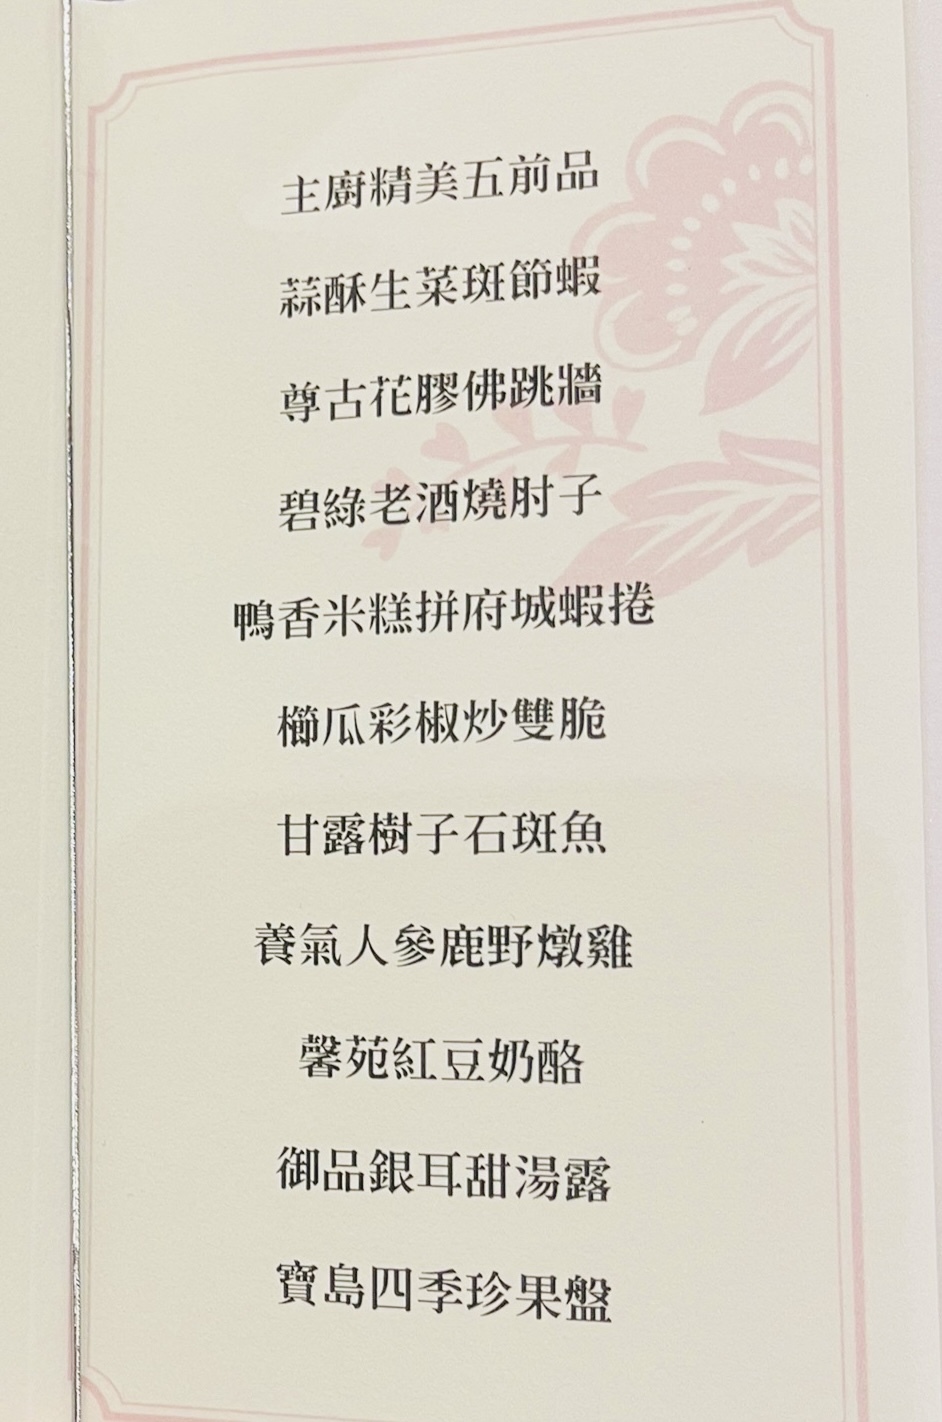 主廚精美五前品
蒜酥生菜斑節蝦
尊古花膠佛跳牆
碧綠老酒燒肘子
鴨香米糕拼府城蝦捲
櫛瓜彩椒炒雙脆
甘露樹子石斑魚
養氣人參鹿野燉雞
馨苑紅豆奶酪
御品銀耳甜湯露
寶島四季珍果盤